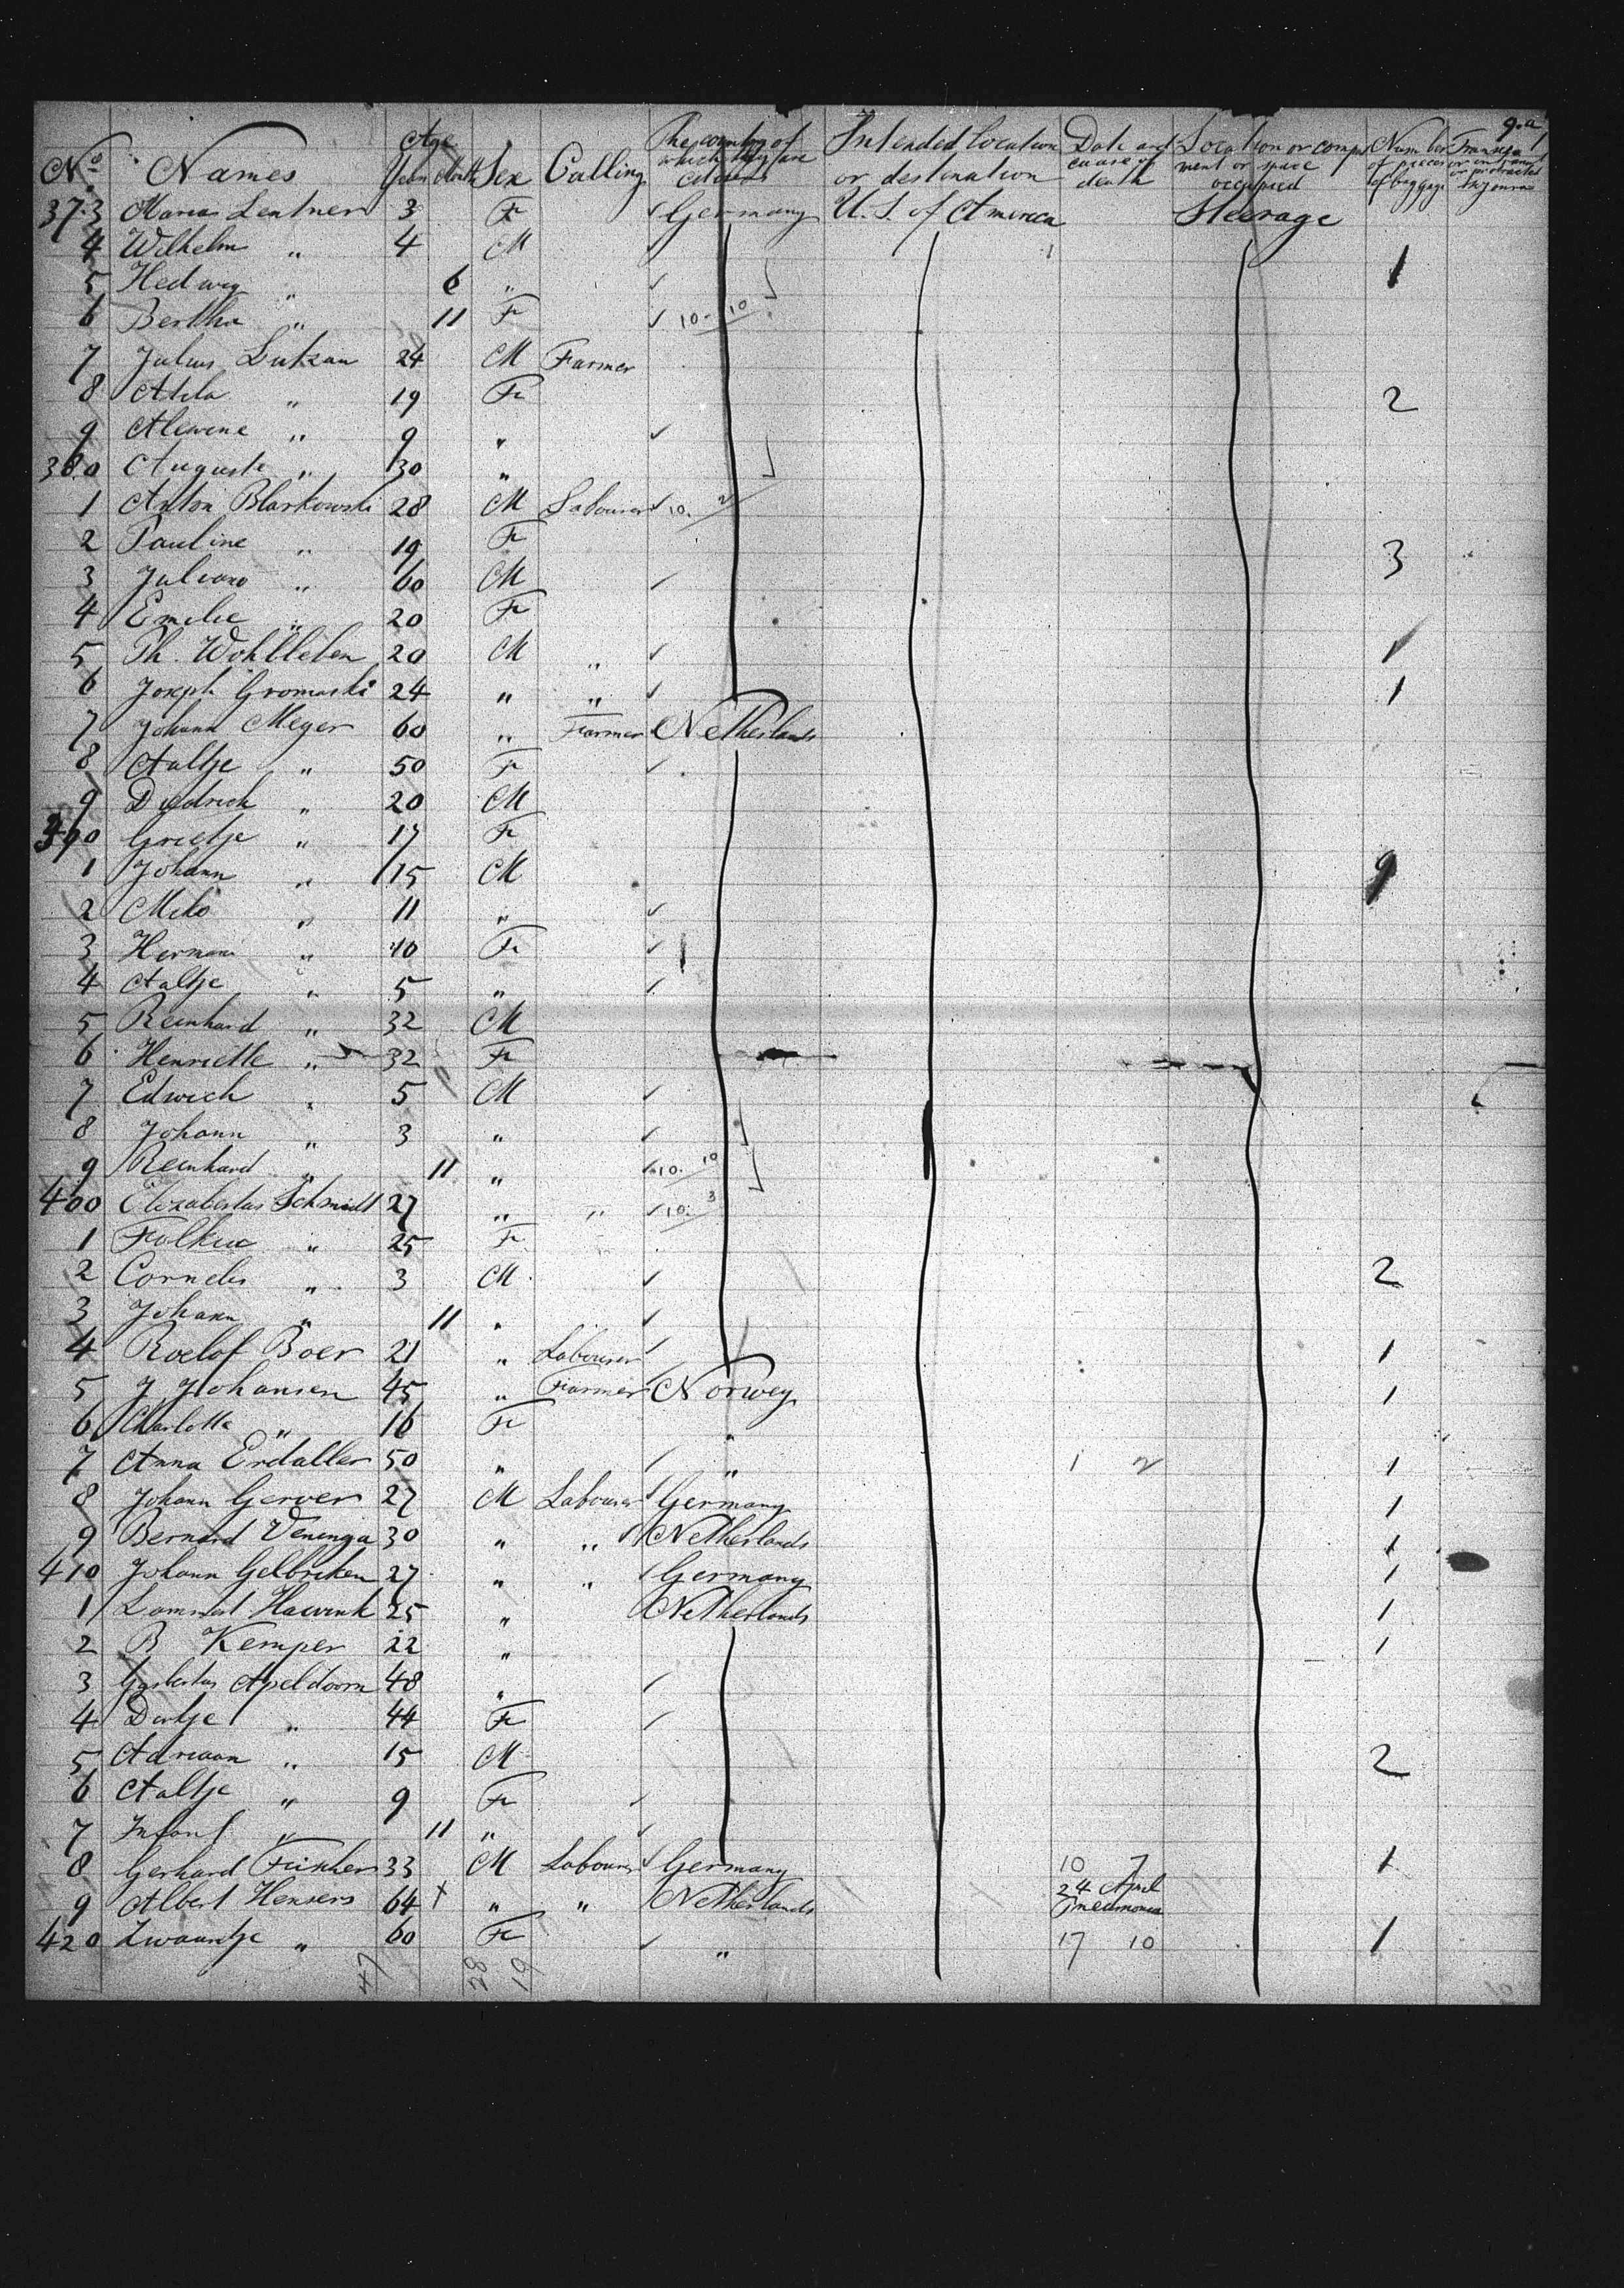 9.a
No Names Age Years Month Sex Calling The country of which they are citizens Intended location or destination Date and cause of death Location or compartment or space occupied Number of pieces of baggage
373 Maria Lentner 3 F Germany U.S. of America Steerage
4 Wilhelm " 4 M 1
5 Hedwig " 6 "
6 Bertha " 11 F 10-10
7 Julius Lutzau 24 M Farmer
8 Atila " 19 F 2
9 Alewene " 9 "
380 Auguste " 30 "
1 Anton Blaskowski 28 M Labourer 10. 2
2 Pauline " 19 F 3
3 " 60 M
4 Emelie " 20 F
5 Th. Wohlleben 20 M " 1
6 Joseph Gromaski 24 " " 1
7 Johann Meyer 60 " Farmer Netherlands
8 Aaltje " 50 F
9 Diedrich " 20 M
390 Grietje " 17 F
1 Johann " 15 M 9
2 " 11 "
3 " 10 F
4 Aaltje " 5 "
5 Reinhard " 32 M
6 Henriette " 32 F
7 Edwich " 5 M
8 Johann " 3 "
9 Reinhard " 11 " 10. 10
400 Elizabertus Schmidt 27 " " 10. 3
1 " 25 F
2 Cornelis " 3 M 2
3 Johann " 11 "
4 Roelof Boer 21 " Labourer 1
5 J Johansen 45 " Farmer Norwey 1
6 Charlotte " 16 F "
7 Anna Erdaller 50 " " 1 2 1
8 Johann Gerver 27 M Labourer Germany 1
9 Bernard Veninga 30 " " Netherlands 1
410 Johann Gelbrihen 27 " " Germany 1
1 Lammert Hawink 25 " Netherlands 1
2 B Kemper 22 " 1
3 Gysbertus Apeldoorn 48 "
4 Dirtje " 44 F
5 Adriaan " 15 M 2
6 Aaltje " 9 F
7 Infant " 11 "
8 Gerhard 33 M Labourer Germany 10 7 1
9 Albert Hensers 64 + " " Netherlands 24 April Pneumonia
420 Zwaantje " 60 F " 17 10 1
47 28 19